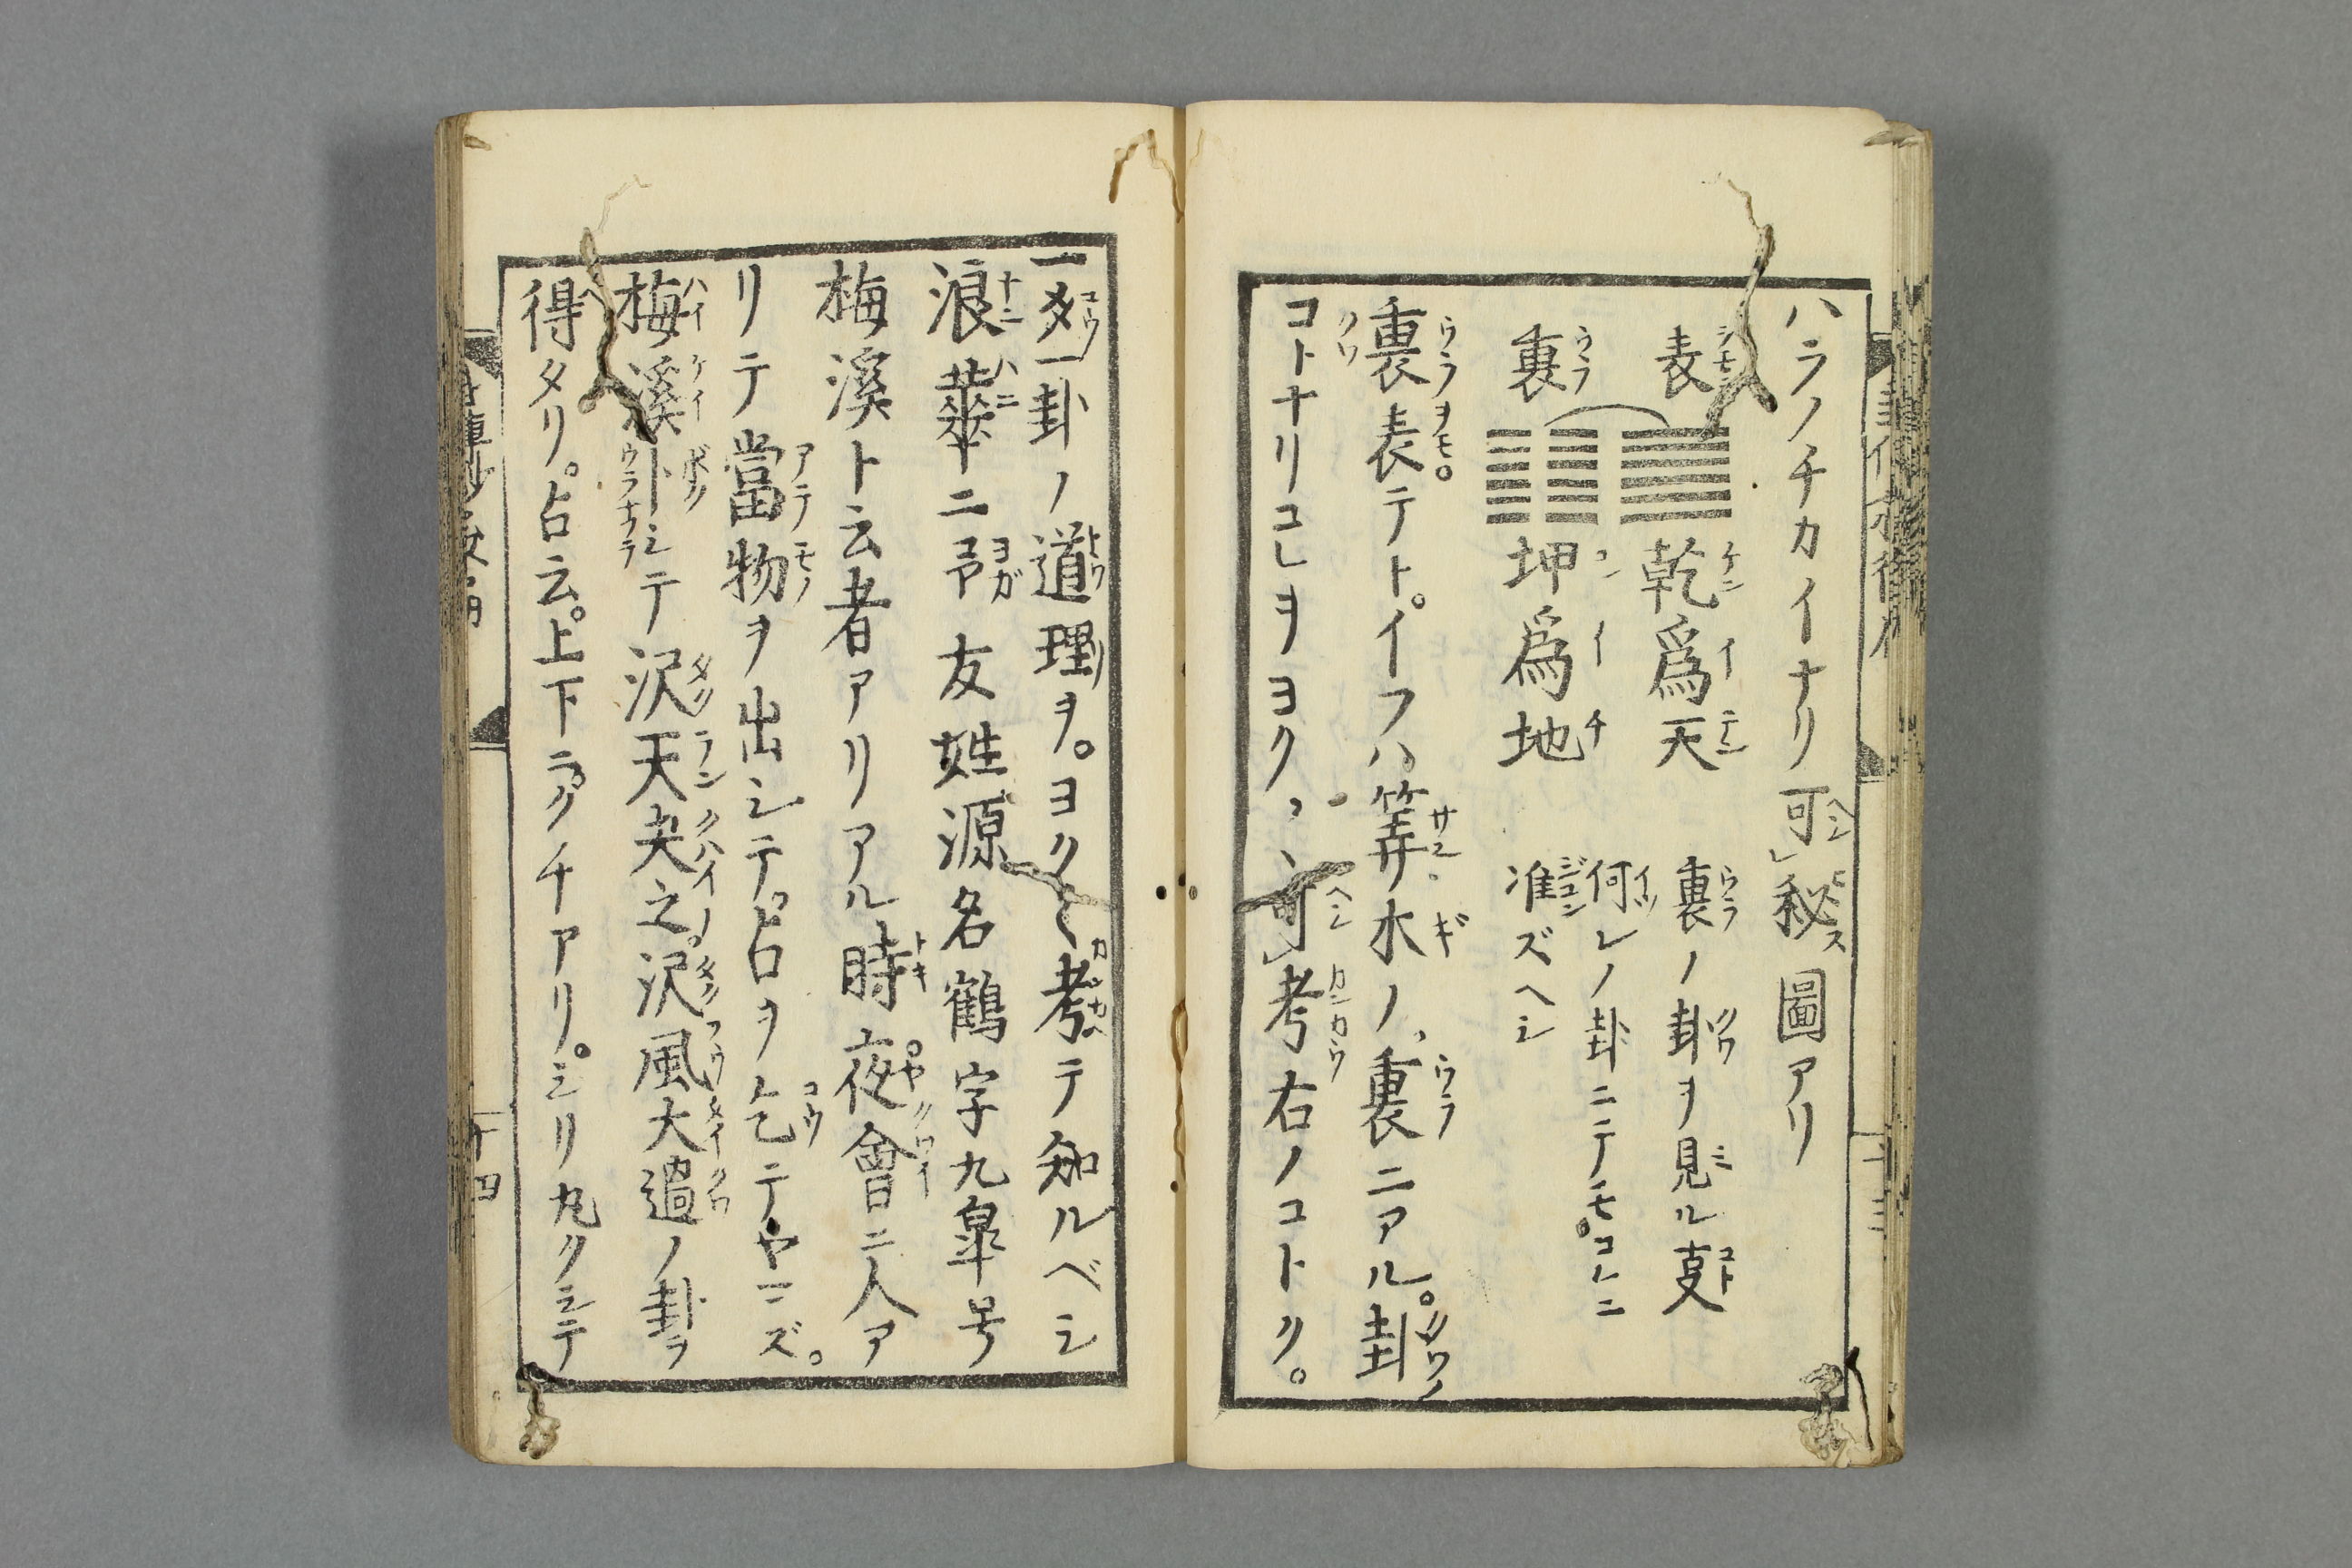 ハラノチカイナリ可㆑秘圖アリ
表 乾爲天 裏ノ卦ヲ見ル支
裏 坤爲地 何レノ卦ニテモ。コレニ
准ズヘシ
裏表テト。イフハ筭木ノ裏ニアル。卦ノ
コトナリコレヲヨク、、可㆑考右ノコトク。
一爻一卦ノ道理ヲ。ヨク〱考テ知ルベシ
浪華ニ予友姓源名鶴字九皐号
梅溪ト云者アリアル時夜會ニ人ア
リテ當物ヲ出シテ占ヲ乞テヤマズ。
梅溪卜シテ沢天夬之沢風大過ノ卦ヲ
得タリ。占云。上下ニクチアリ。シリ丸クシテ
十四